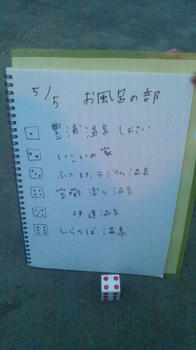 5/5 お風呂の部
⚀ 豊浦温泉 しおさい
⚁ いこいの家
⚂ ふたまたラジウム温泉
⚃ 温泉
⚄ 伊達温泉
⚅ しらかば温泉